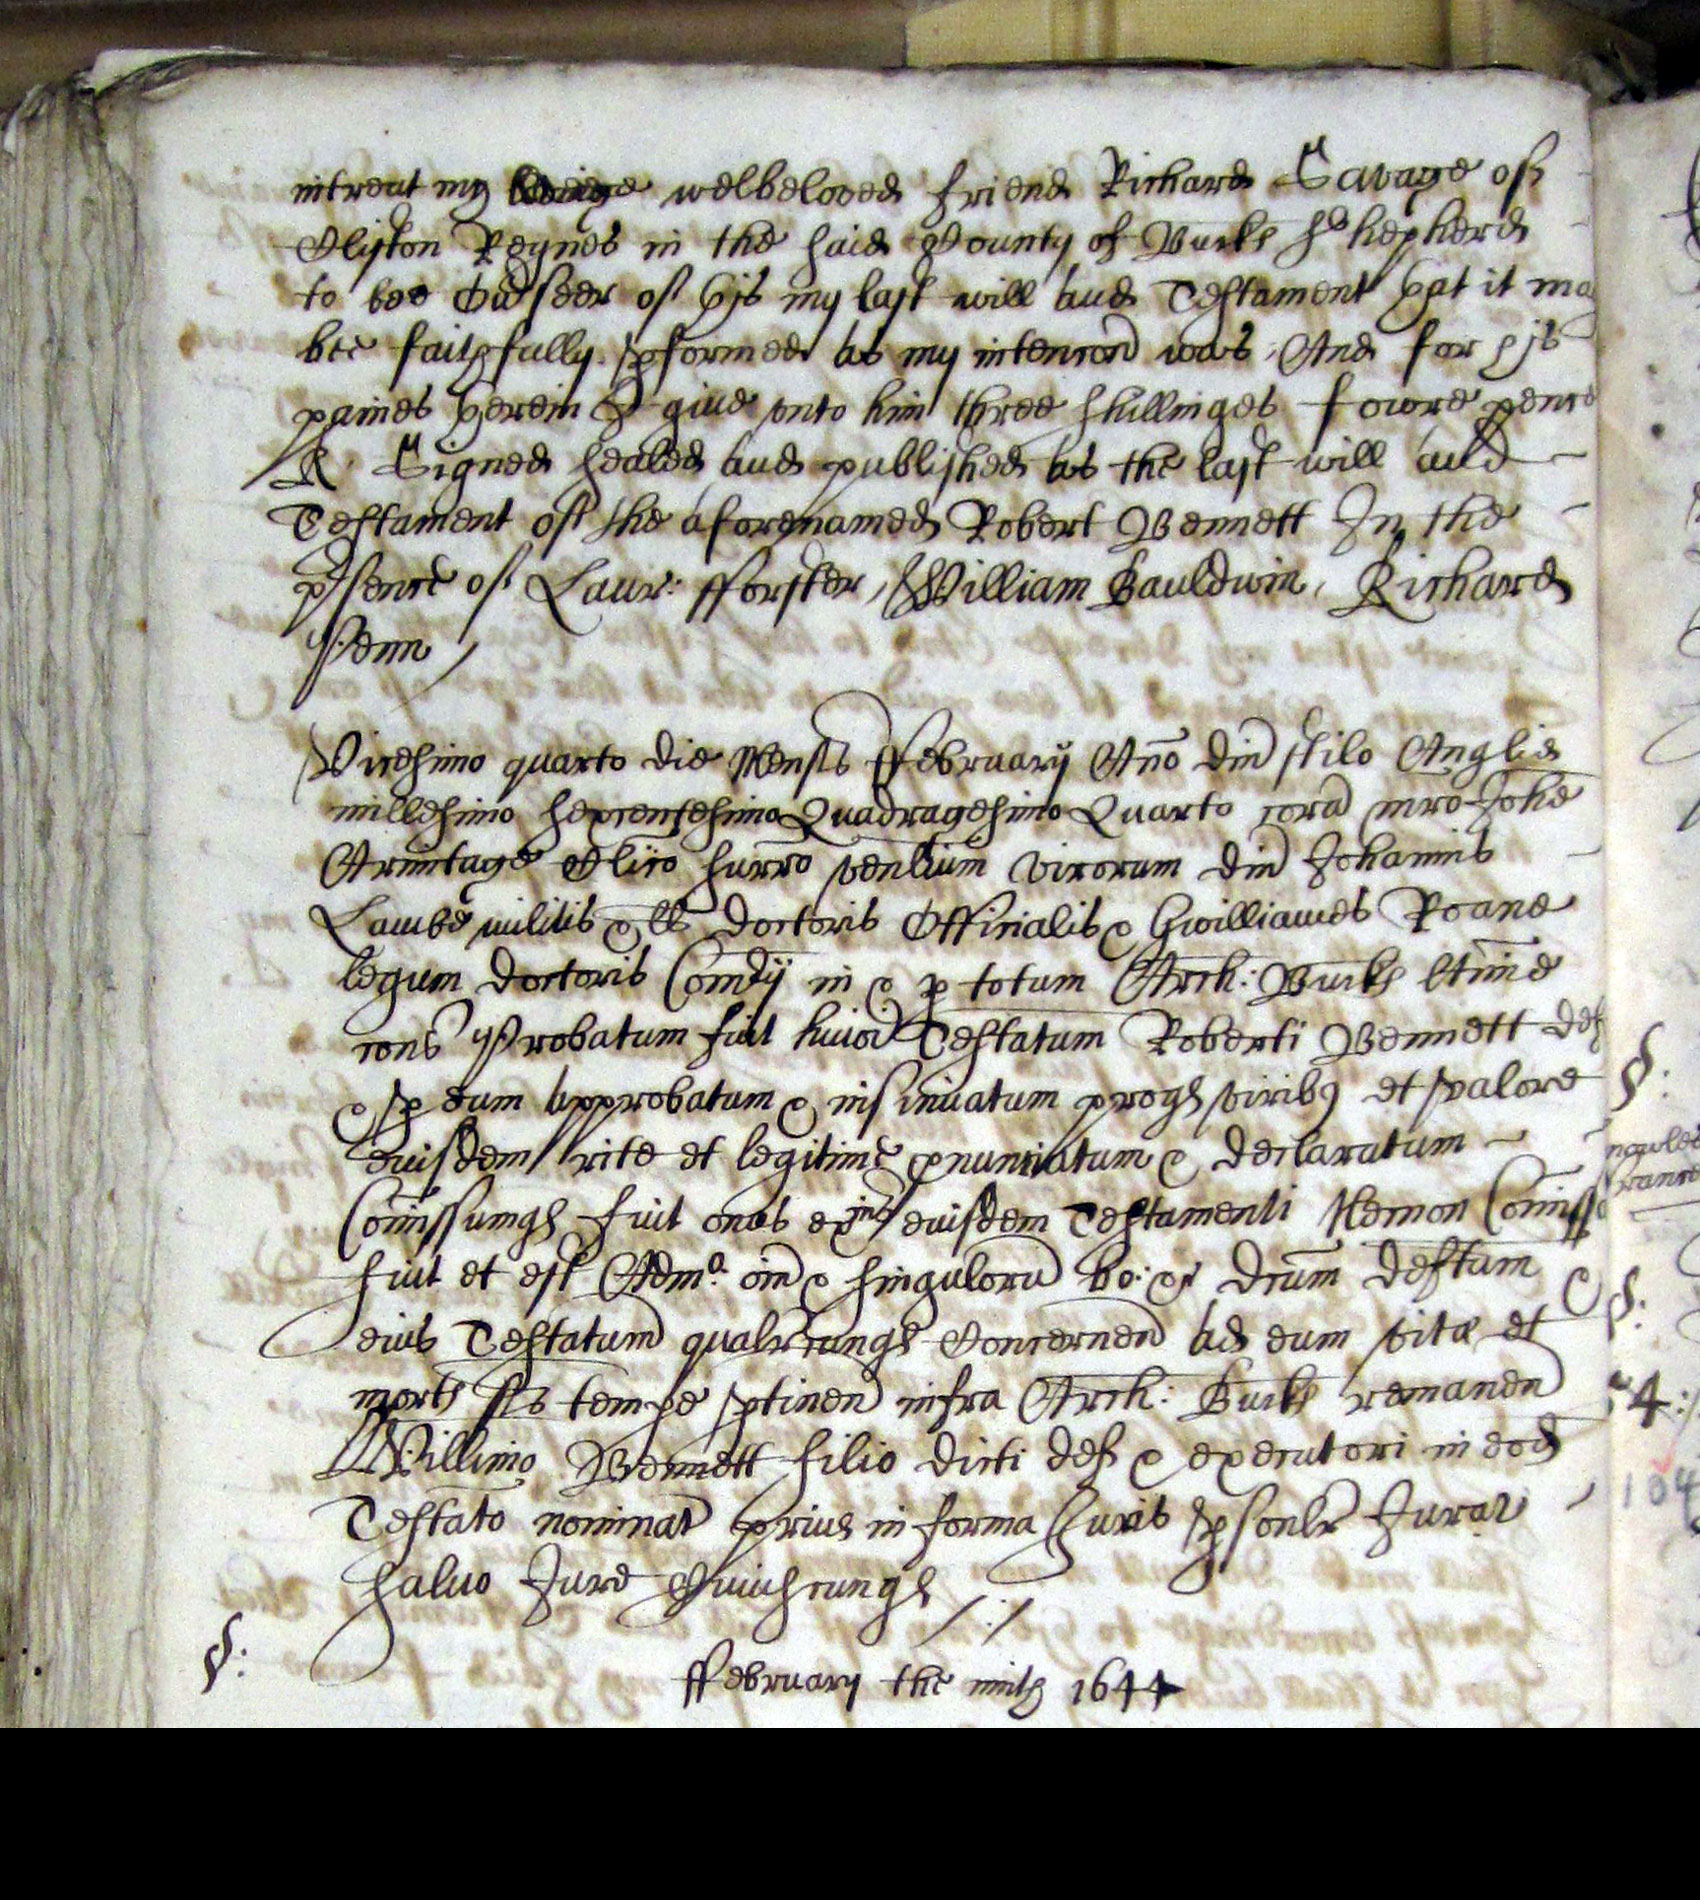 intreat my welbeloved friend Richard Savage of
Clifton Reynes in the said County of Bucks shepherd
to bee Ov'seer of this my last will and Testament that it ma
bee faithfully p'formed as my intencon was. And for his
paines herein I give unto him three shillinges fowre pence
Signed sealed and published as the last will and
Testament of the aforenamed Robert Bennett In the
p'sence of Laur: fforster, William Bauldwin, Richard
Penn
Vicesimo quarto die Mensis ffebruarij Ano din stilo Anglie
millesimo sexcentesimo Quadragesimo Quarto cora mro Johe
Armitage Clico surro ven'lium virorum din Johannis
Lambe militis & ll doctoris Officialis & Gwilliames Roane
legum doctoris Comrij in & p totum Arch: Bucks ltime
cons Probatum fuit huiod Testatum Roberti Bennett def
& p eum approbatum & insinuatum proq viribq et valore
euisdem rite et legitime pnunciatum & declaratum
Comissumq fuit onus exnis euisdem Testamenti Nemon Comiss
fuit et est Adm.a oim & singuloru bo: & drum deftum
eius Testatum qualrcunq Concernen ad eum vitæ et
mortis sis tempe ptinen infra Arch: Bucks remanen
Willimo Bennett filio dicti def & executori in eod
Testato nominat prius in forma Juris psonlr Jurat
salvo Jure Cuiuscunq /:/
§:
ffebruary the ninth 1644
§:
§: